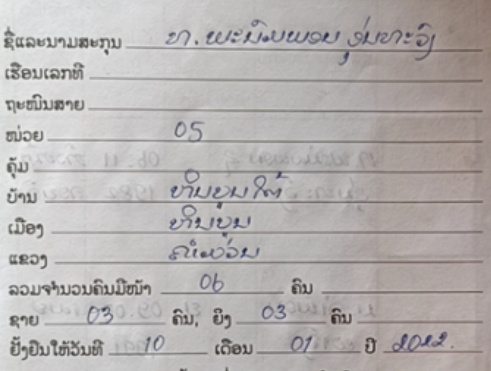 ຊື່ແລະນາມສະກຸນ ທ. ພະນົມພອນ
ເຮືອນເລກທີ
ຖະໜົນສາຍ
ໜ່ວຍ 05
ຄຸ້ມ
ບ້ານ ທ່າບູນໃຕ້
ເມືອງ
ແຂວງ ຄຳມ່ວນ
ລວມຈຳນວນຄົນມີໜ້າ 06 ຄົນ
ຊາຍ 03 ຄົນ, ຍິງ 03 ຄົນ
ຢັ້ງຢືນໃຫ້ວັນທີ 10 ເດືອນ 01 ປີ 2022.